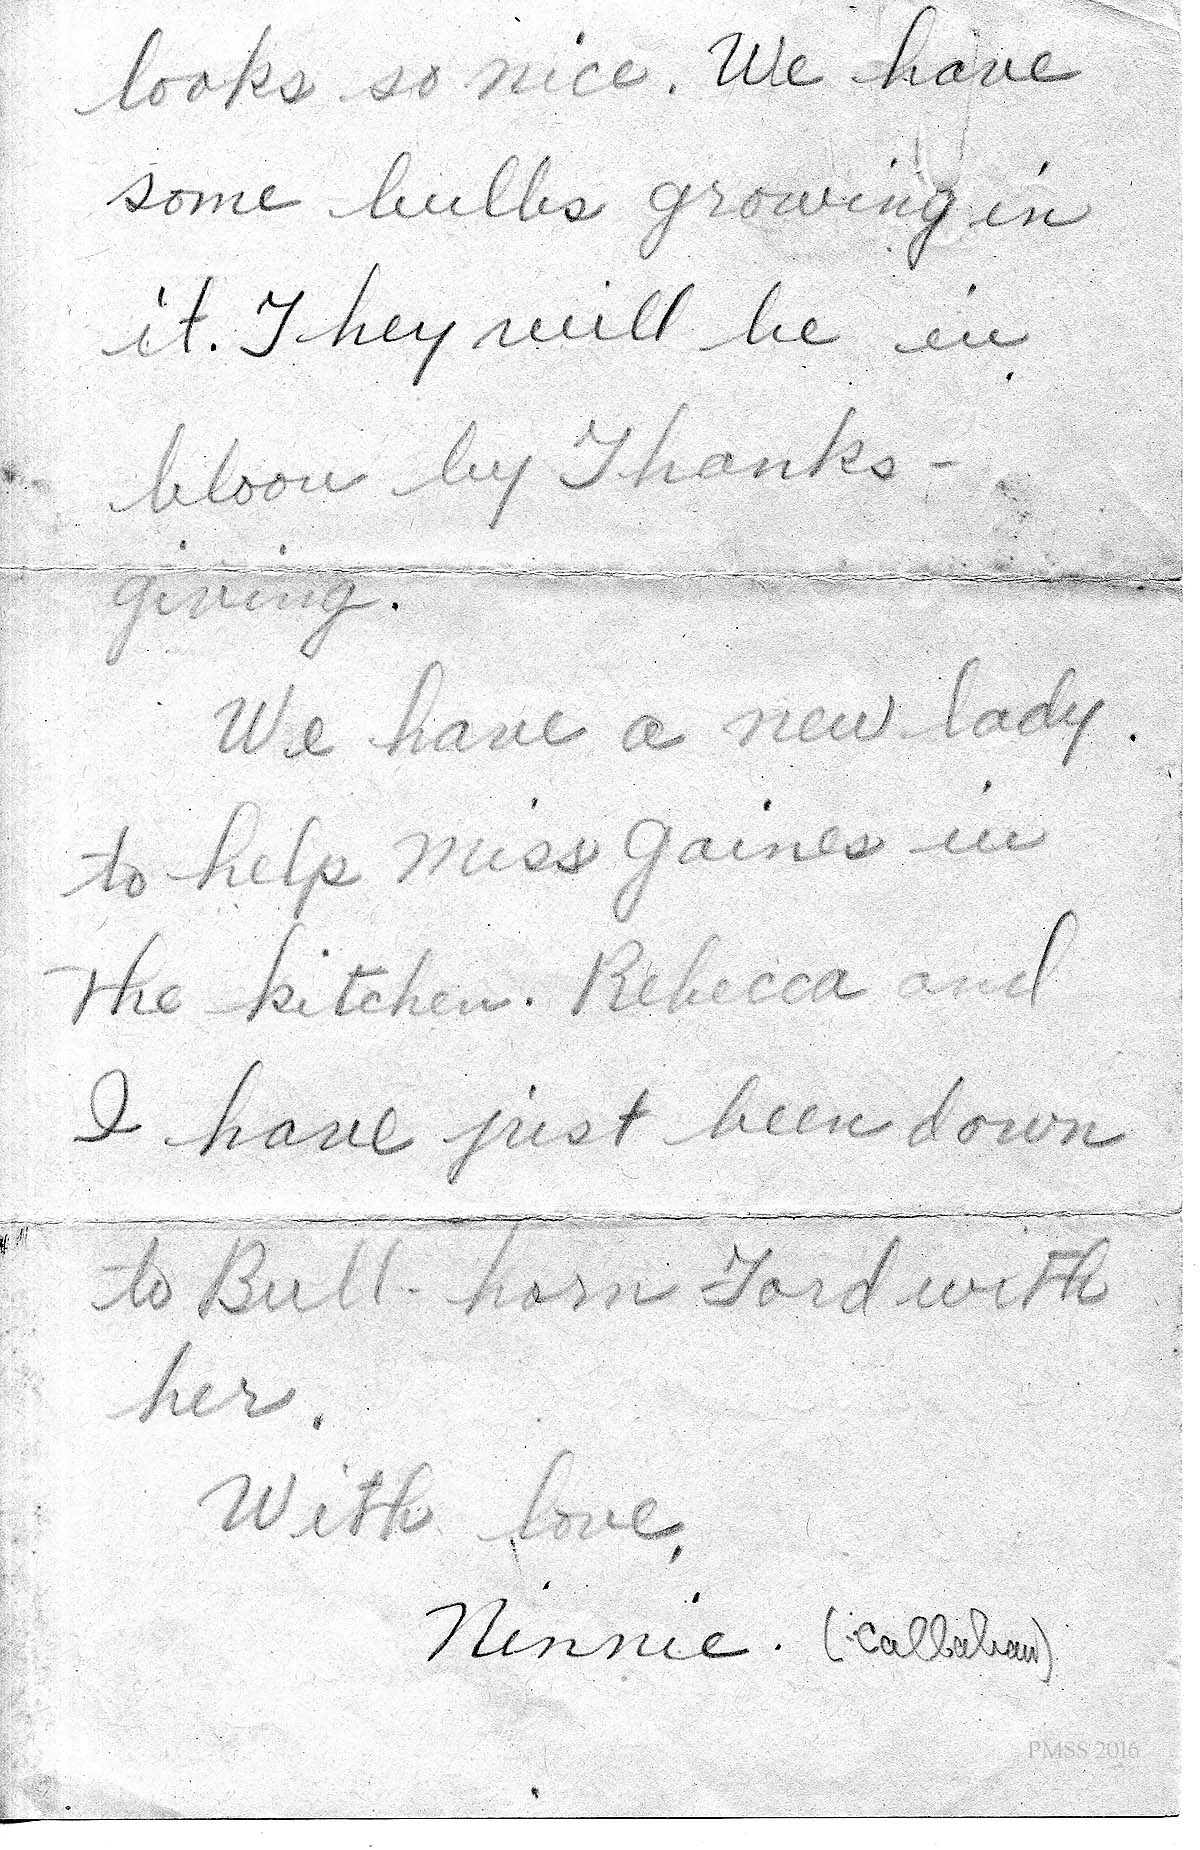 looks so nice. We have
some bulbs growing in
it. They will be in
bloom by Thanks-
giving.
We have a new lady
to help Miss Gaines in
the kitchen. Rebecca and
I have just been down
to Bull-horn Ford with
her.
With love,
Ninnie. (Callahan)
PMSS 2016